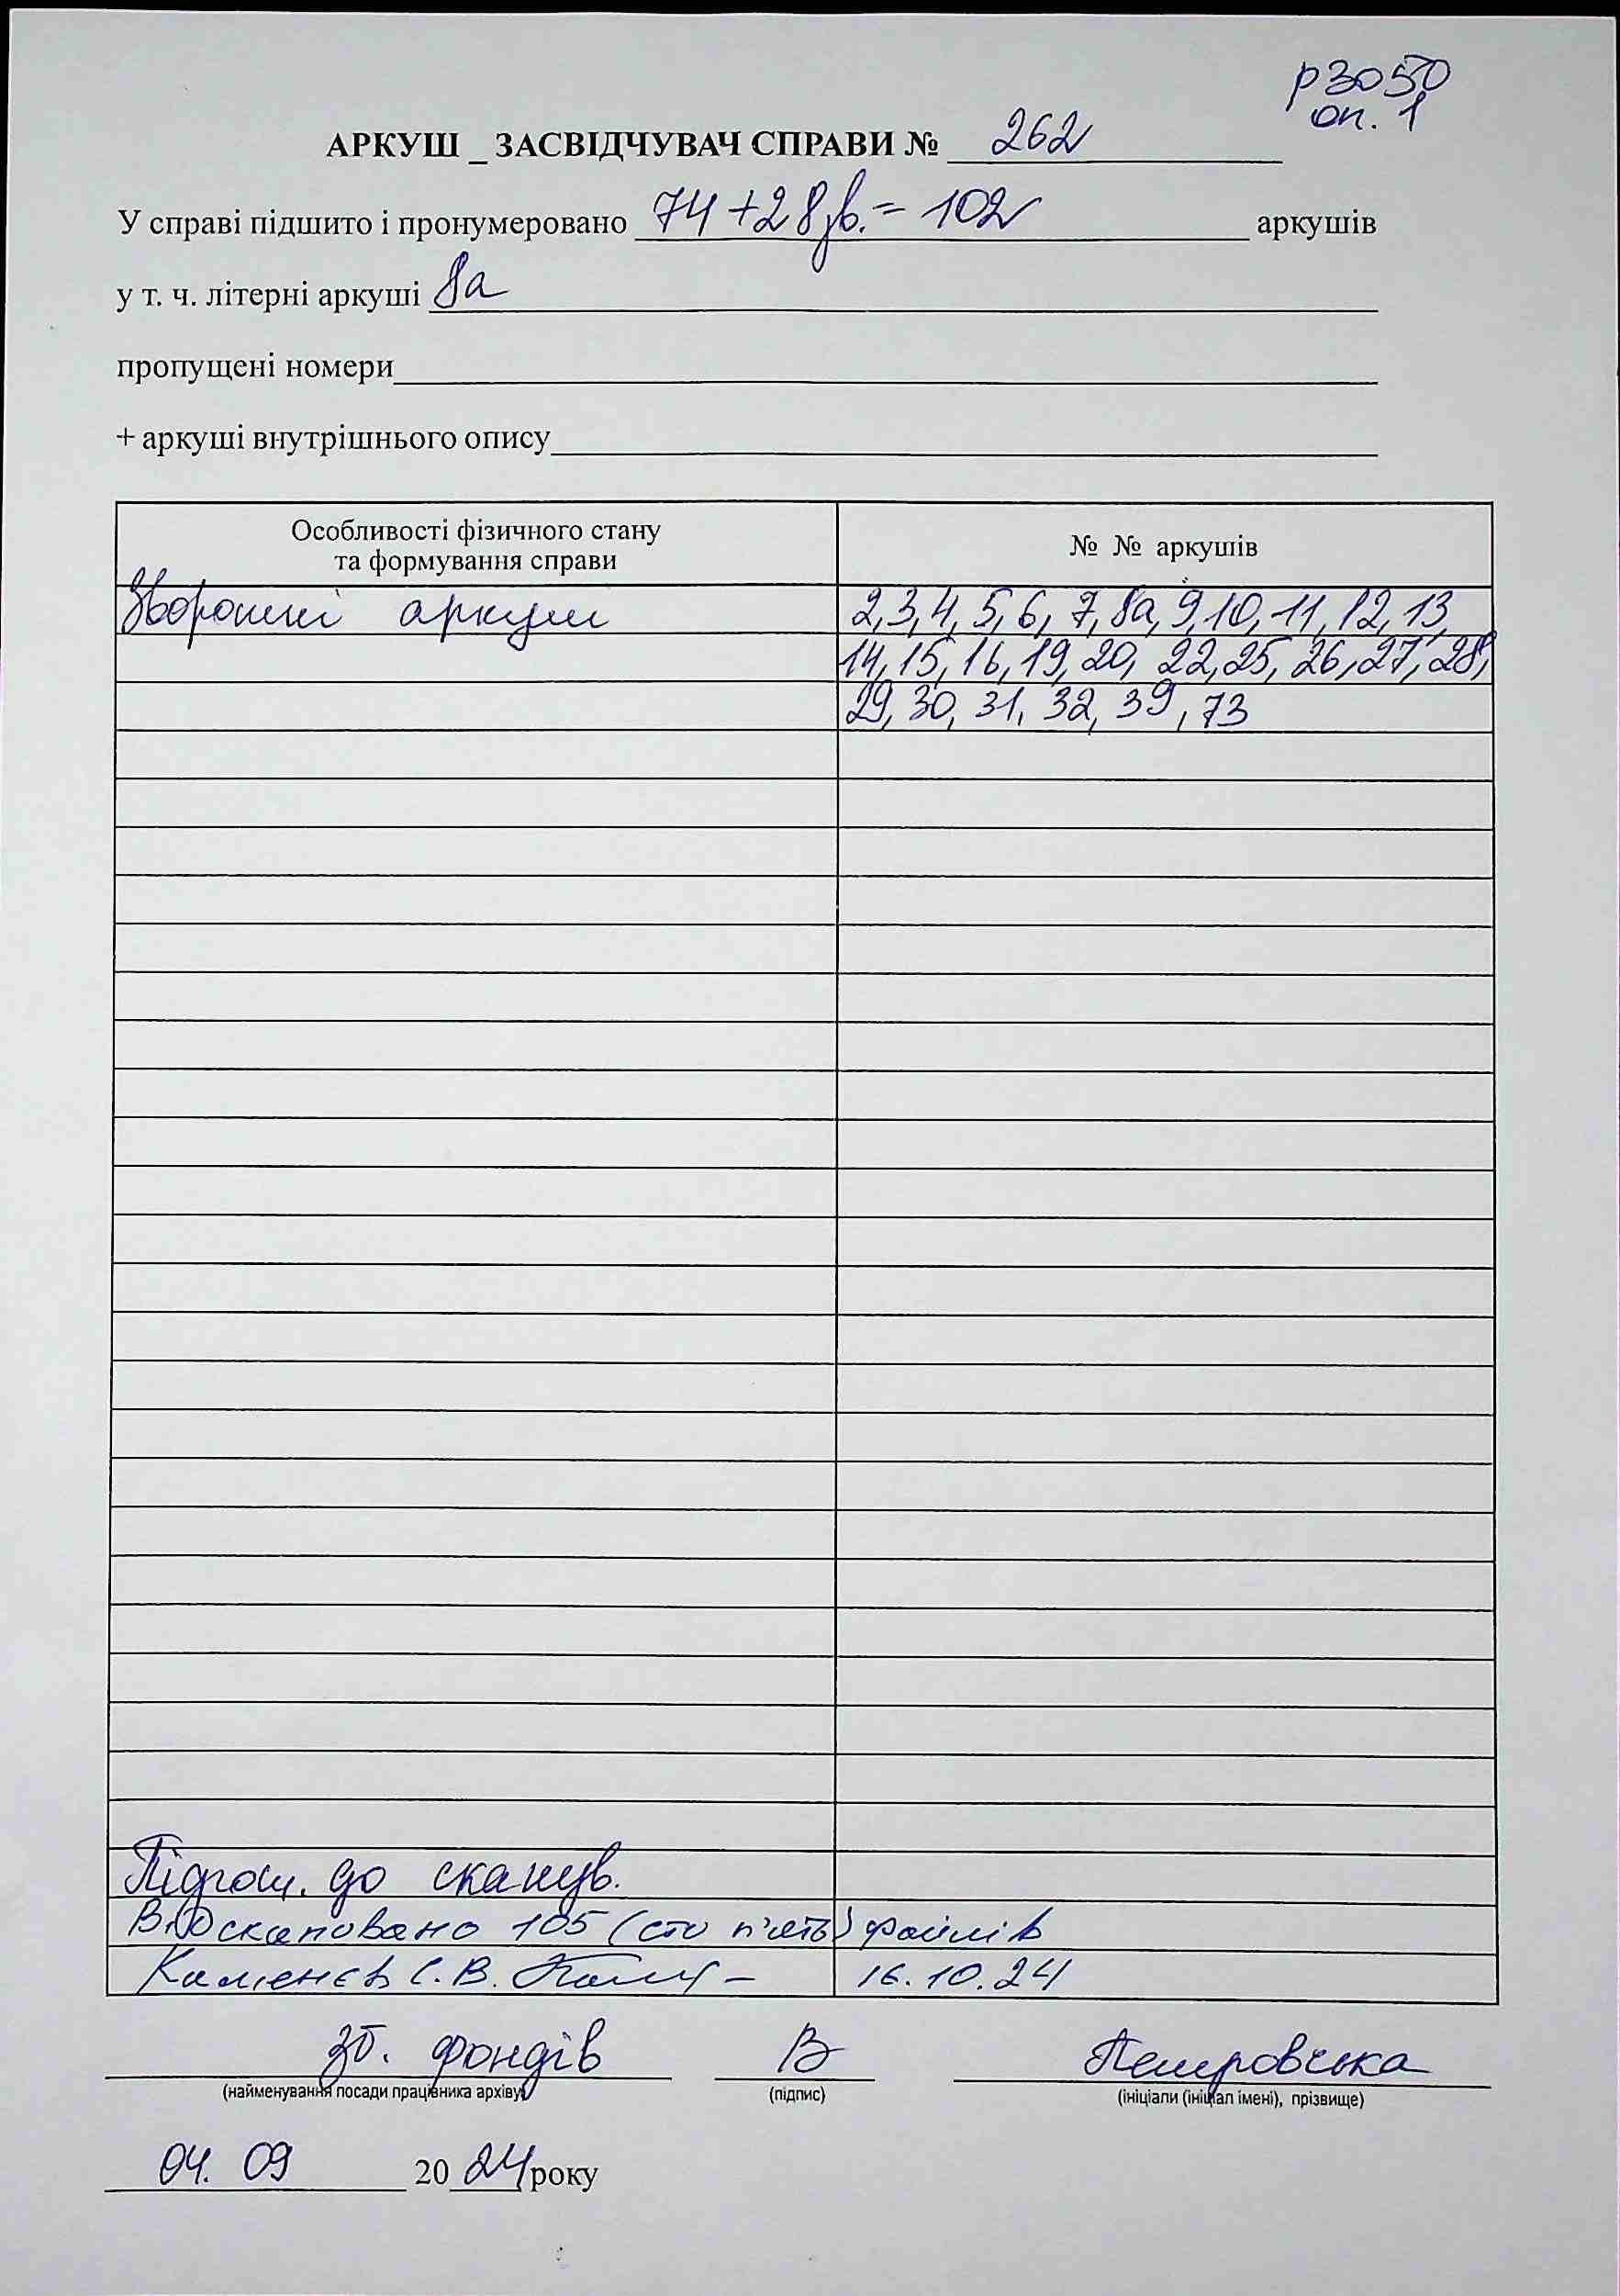 р3050
оп. 1
АРКУШ _ ЗАСВІДЧУВАЧ СПРАВИ № 262
У справі підшито і пронумеровано 74+28зв.= 102 аркушів
у т. ч. літерні аркуші 8а
пропущені номери
+ аркуші внутрішнього опису
Особливості фізичного стану
та формування справи
№ № аркушів
Зворотні аркуші 2,3,4,5,6,7,8а,9,10,11,12,13,
14,15,16,19,20,22,25,26,27,28,
29,30,31,32,39,73
Підгот. до сканув.
Відскановано 105 (сто п'ять) файлів
Каменєв С.В. 16.10.24
зб. фондів В Петровська
(найменування посади працівника архіву) (підпис) (ініціали (ініціал імені), прізвище)
04. 09 2024 року